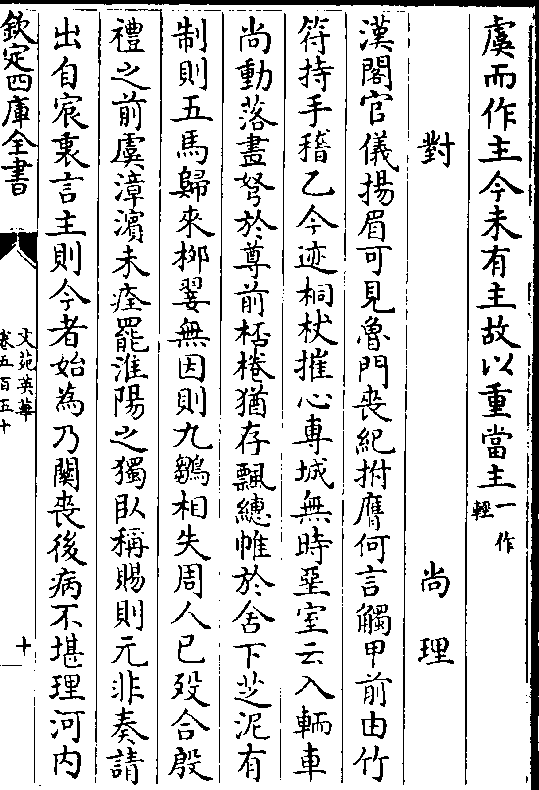 虞而作主今未有主故以重當主一作輕
對　尚理
漢閣官儀揚眉可見魯門喪紀拊膺何言觸甲前由竹
符持手稽乙今迹桐杖摧心專城無時堊室云入輀車
尚動落盡弩於尊前桮棬猶存飄繐帷於舍下芝泥有
制則五馬歸來栁翣無因則九鶵相失周人已歿合殷
禮之前虞漳濱未痊罷淮陽之獨卧稱賜則元非奏請
出自宸衷言主則今者始為乃闋喪後病不堪理河内
欽定四庫全書
文苑英華
卷五百五十
十